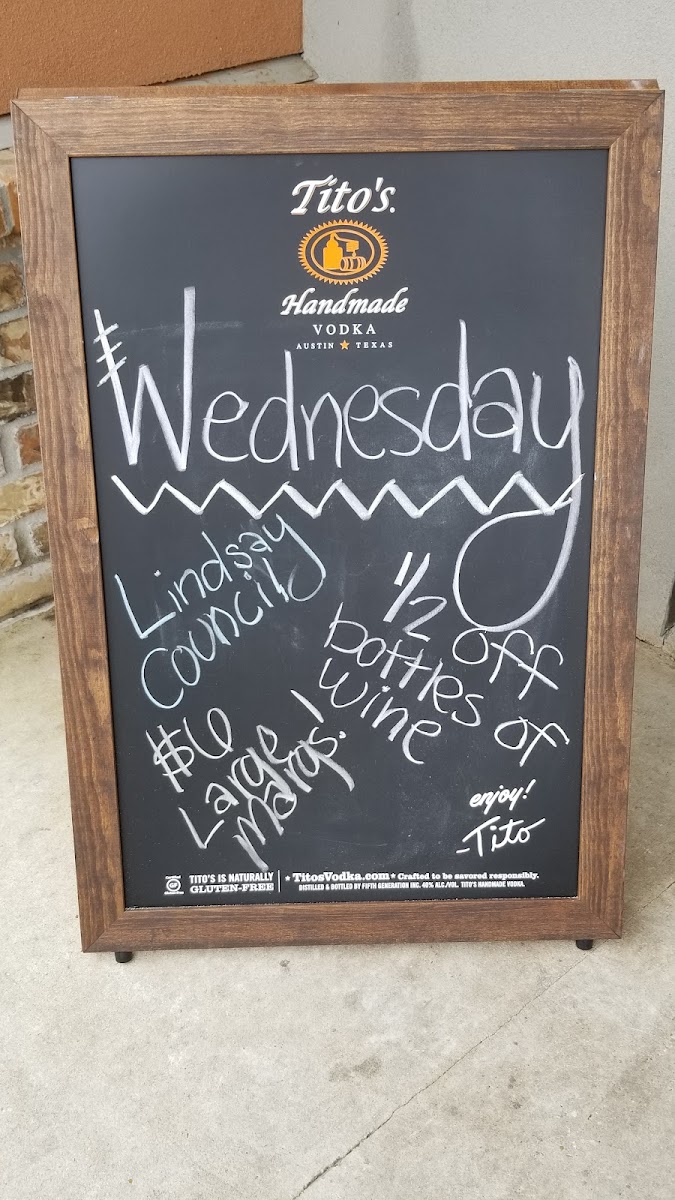 Tito's.
Handmade
VODKA
AUSTIN ★ TEXAS
Wednesday
Lindsay
Council
1/2 off
bottles of
wine
$6
Large
Margs!
enjoy!
-Tito
GF
TITO'S IS NATURALLY
GLUTEN-FREE
★ TitosVodka.com ★ Crafted to be savored responsibly.
DISTILLED & BOTTLED BY FIFTH GENERATION INC. 40% ALC./VOL. TITO'S HANDMADE VODKA.